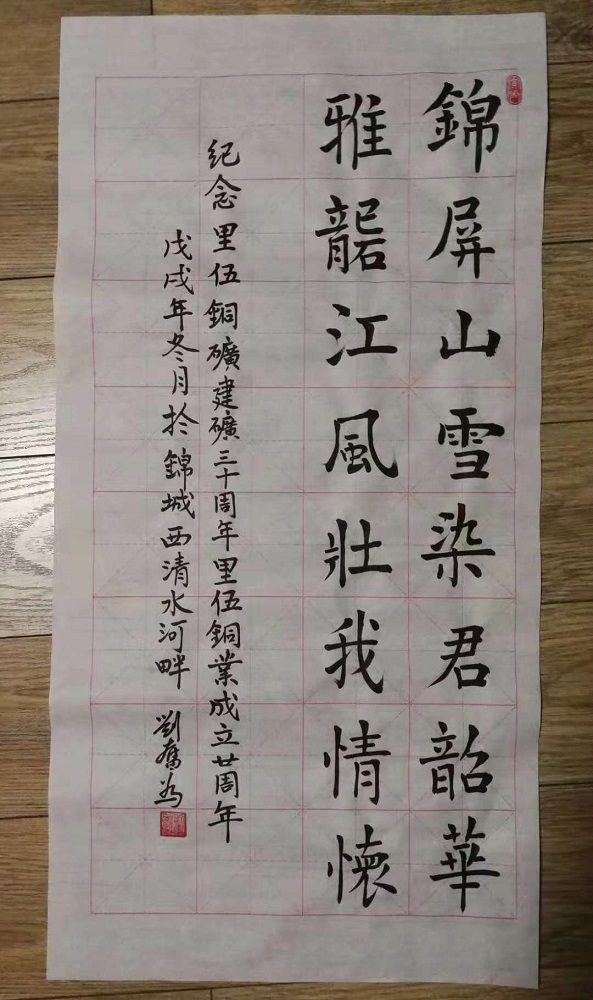 錦屏山雪染君韶華
雅礱江風壯我情懷
紀念里伍銅礦建礦三十周年里伍銅業成立廿周年
戊戌年冬月於錦城西清水河畔 劉奮為